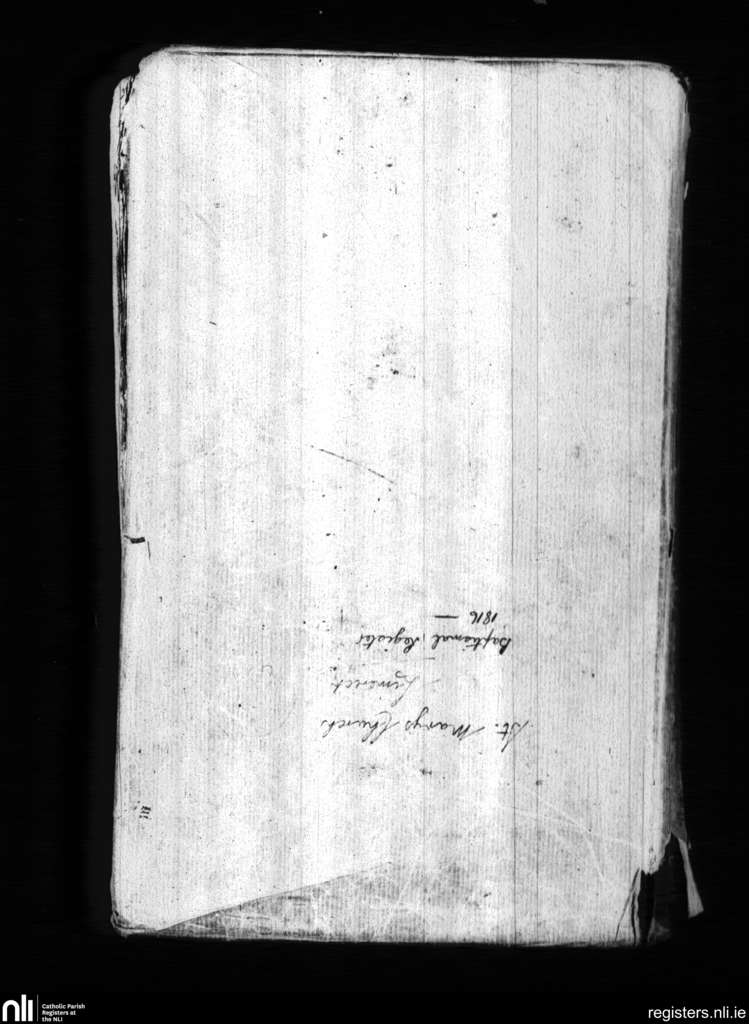 St. Marys Church
Limerick
Baptismal Register
1816 —
iii
nli
Catholic Parish
Registers at
the NLI
registers.nli.ie